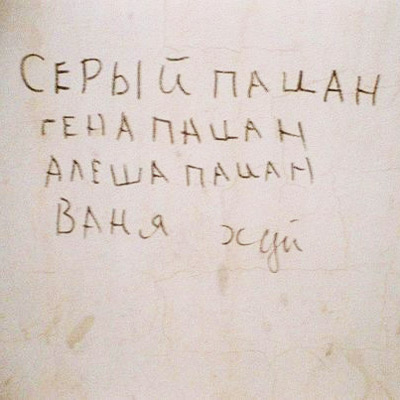 СЕРЫЙ ПАЦАН
ГЕНА ПАЦАН
АЛЕША ПАЦАН
ВАНЯ хуй